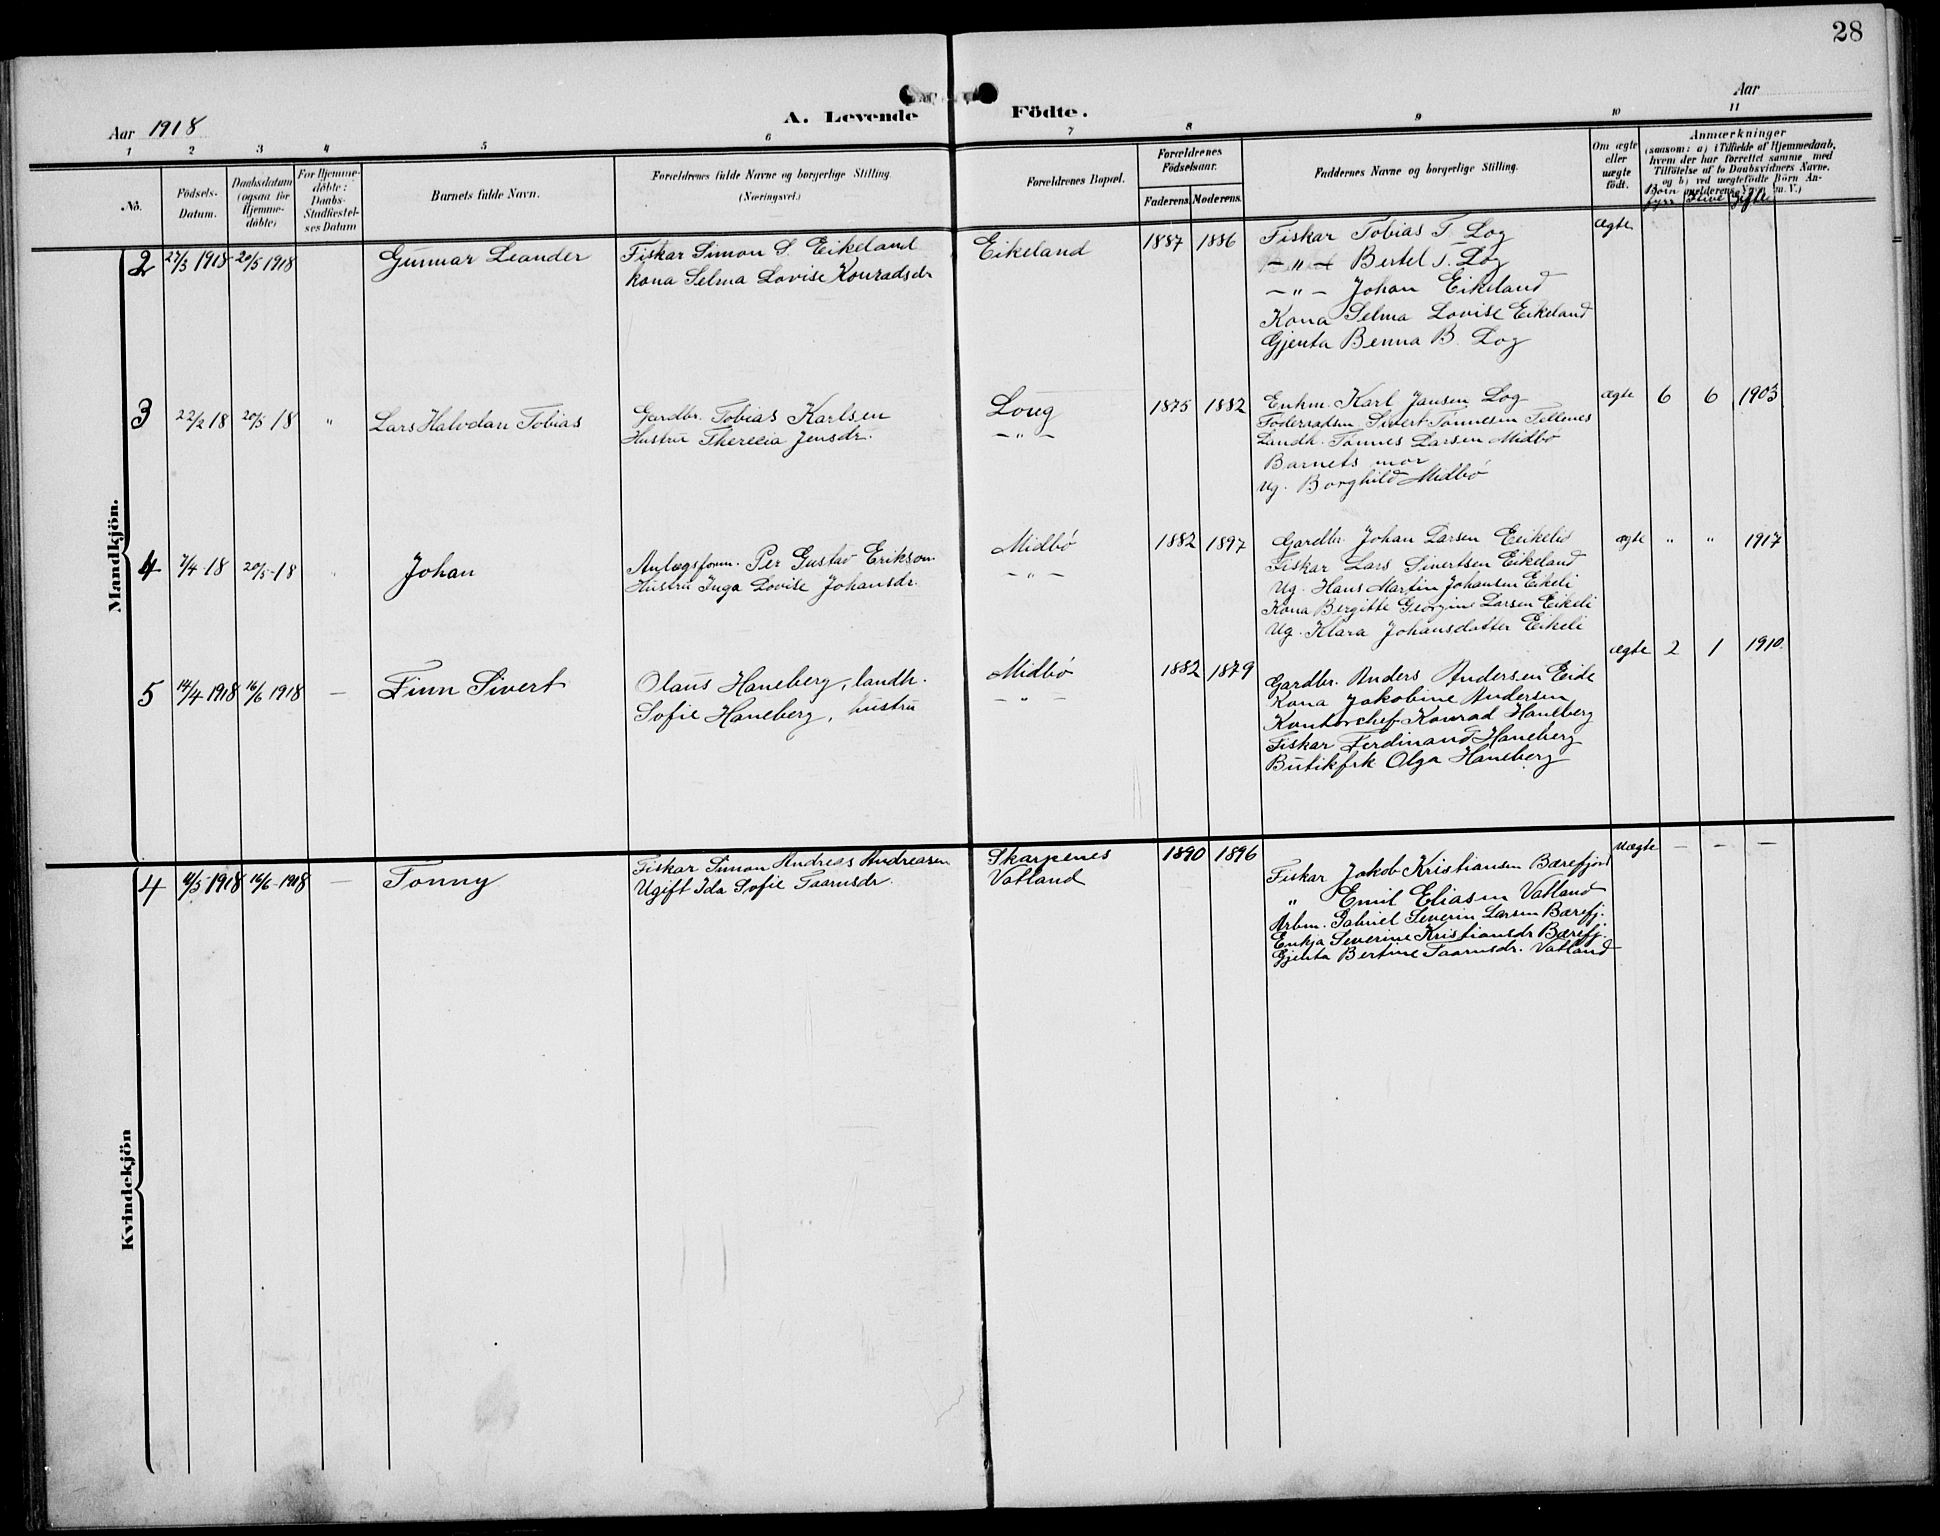 28
Aar 1918
A. Levende Födte.
Aar
1 2 3 4 5 6 7 8 9 10 11
No.
Födsels-
Datum.
Daabsdatum
(ogsaa for
Hjemme-
döbte)
For Hjemme-
döbte:
Daabs-
Stadfæstel-
ses Datum
Barnets fulde Navn.
Forældrenes fulde Navne og borgerlige Stilling.
(Næringsvei.)
Forældrenes Bopæl.
Forældrenes
Födselsaar.
Faderens. Moderens.
Faddernes Navne og borgerlige Stilling.
Om ægte
eller
uægte
födt.
Anmærkninger
(saasom: a) i Tilfælde af Hjemmedaab,
hvem der har forrettet samme med
Tilföielse af to Daabsvidners Navne,
og b) ved uægtefödte Börn An-
melderens Navn m. V.)
Børn
fyrr ilive Gifte
Mandkjön.
2 27/3 1918 20/5 1918 Gunnar Leander
Fiskar Simon S. Eikeland
kona Selma Lovise Konradsdr
Eikeland
1887 1886
Fiskar Tobias T. Log
– " – Bertel T. Log
– " – Johan Eikeland
Kona Selma Lovise Eikeland
Gjenta Benna B. Log
ægte
3 22/2 18 20/5 18 " Lars Halvdan Tobias
Gardbr. Tobias Karlsen
Hustru Therecia Jensdr.
Loug
– " –
1875 1882
Enkm. Karl Jansen Log
Föderaadsm. Sivert Tønnesen Tellenes
Landh. Tønnes Larsen Midbø
Barnets mor
Ug. Borghild Midbö
ægte 6 6 1903
4 7/4 18 20/5 18 " Johan
Anlægsform. Per Gustav Erikson
Hustru Inga Lovise Johansdr.
Midbø
– " –
1882 1897
Gardbr. Johan Larsen Eikeli
Fiskar Lars Sivertsen Eikeland
Ug. Hans Martin Johansen Eikeli
Kona Bergitte Georgine Larsen Eikeli
Ug. Klara Johansdatter Eikeli
ægte " " 1917
5 14/4 1918 16/6 1918 – Finn Sivert
Olaus Haneberg, landh.
Sofie Haneberg, hustru
Midbø
– " –
1882 1879
Gardbr. Anders Andersen Eide
Kona Jakobine Andersen
Kontorchef Konrad Haneberg
Fiskar Ferdinand Haneberg
Butikfrk Olga Haneberg
ægte 2 1 1910.
Kvindekjön
4 11/5 1918 16/6 1918 – Tonny
Fiskar Simon Andreas Andreasen
Ugift Ida Sofie Taarnsdr.
Skarpenes
Vatland
1890 1896
Fiskar Jakob Kristiansen Bærefjord
" Emil Eliasen Vatland
Arbm. Gabriel Severin Larsen Bærefj.
Enkja Severine Kristiansdr Bærefj.
Gjenta Bertine Taarnsdr. Vatland
uægte – – –